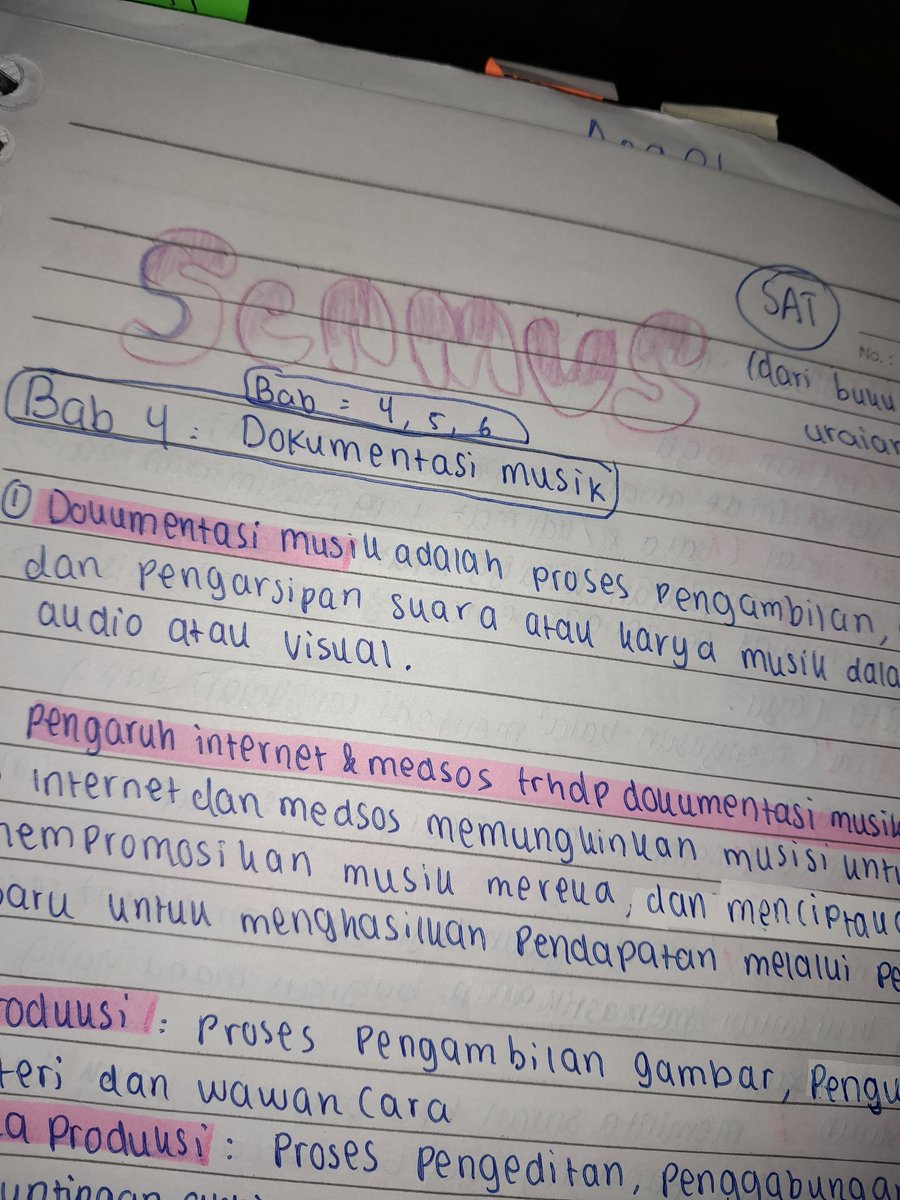 Senmus
SAT
No. :
(dari buku
uraian
Bab = 4, 5, 6
Bab 4 : Dokumentasi musik
① Dokumentasi musik adalah proses pengambilan,
dan pengarsipan suara atau karya musik dala
audio atau visual.
pengaruh internet & medsos trhdp dokumentasi musik
internet dan medsos memungkinkan musisi untu
mempromosikan musik mereka, dan menciptak
baru untuk menghasilkan Pendapatan melalui pe
roduksi : Proses pengambilan gambar, Pengu
teri dan wawancara
a Produksi : Proses pengeditan, penggabungan
untingan